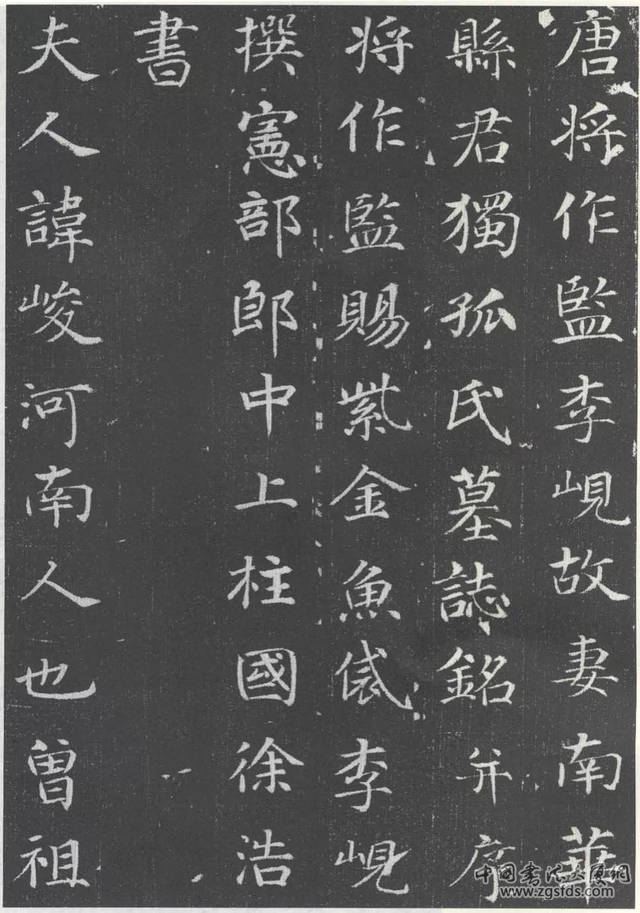 唐将作監李峴故妻南華
縣君獨孤氏墓誌銘并序
将作監賜紫金魚袋李峴
撰憲部郎中上柱國徐浩
書
夫人諱峻河南人也曾祖
中国书法大厦网
www.zgsfds.com